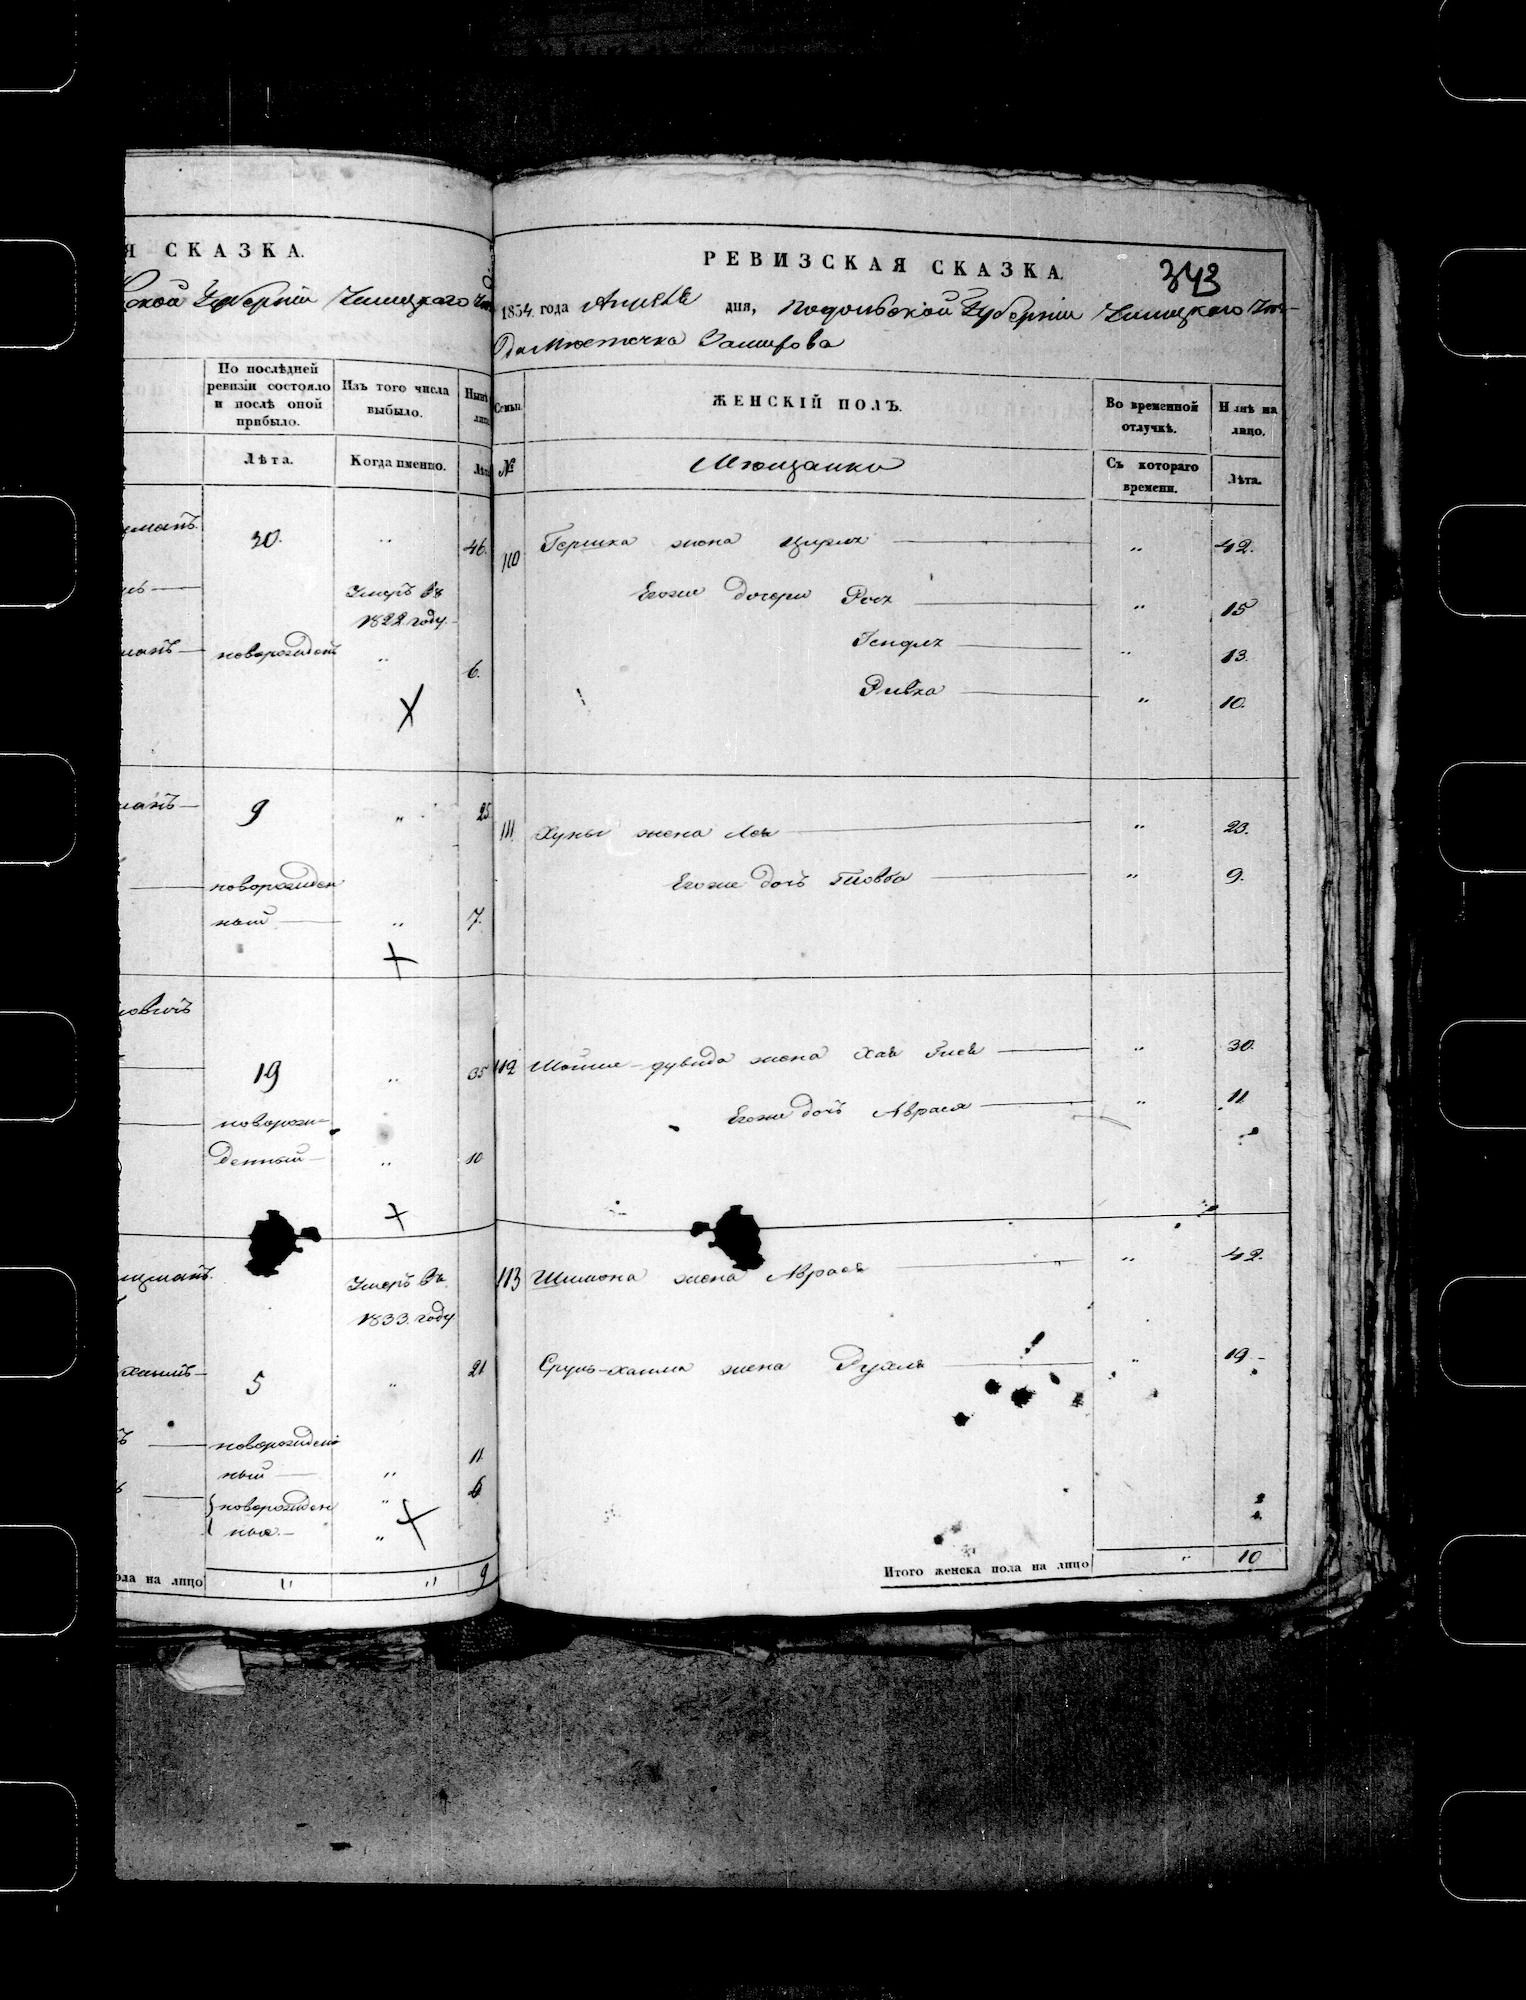 Я СКАЗКА.
ской Губерніи Ушицкаго
По послѣдней
ревизіи состояло
и послѣ оной
прибыло.
Изъ того числа
выбыло.
Нынѣ
Лѣта.
Когда именно.
Лѣта
30.
〃
46.
Умеръ въ
1822 году.
новорожден
〃
6.
9
〃
25
новорожден
ный
〃
7.
19
〃
35
новорож-
денный
〃
10
Умеръ въ
1833. году
5
〃
21
новорожден
ный
〃
11
новорожден
〃
6
ные.
〃
ола на лицо
11
〃
9
РЕВИЗСКАЯ СКАЗКА.
343
1834. года Апрѣля дня, Подольской Губерніи Ушицкаго Уѣз-
да Мѣстечка Замихова
Семьи.
ЖЕНСКІЙ ПОЛЪ.
Во временной
отлучкѣ.
Нынѣ на
лицо.
№
Мѣщанки
Съ котораго
времени.
Лѣта.
110 Гершка жена Цирля 〃 42.
Егоже дочери Рося 〃 15
Гендля 〃 13.
Ривка 〃 10.
111. Хуны жена Лея 〃 23.
Егоже дочь 〃 9.
112 Шойме-дувида жена Хая 〃 30.
Егоже дочь Аврася 〃 11
113 Шимона жена Аврася 〃 42.
Сруль-хаима жена Рухля 〃 19
Итого женска пола на лицо 〃 10